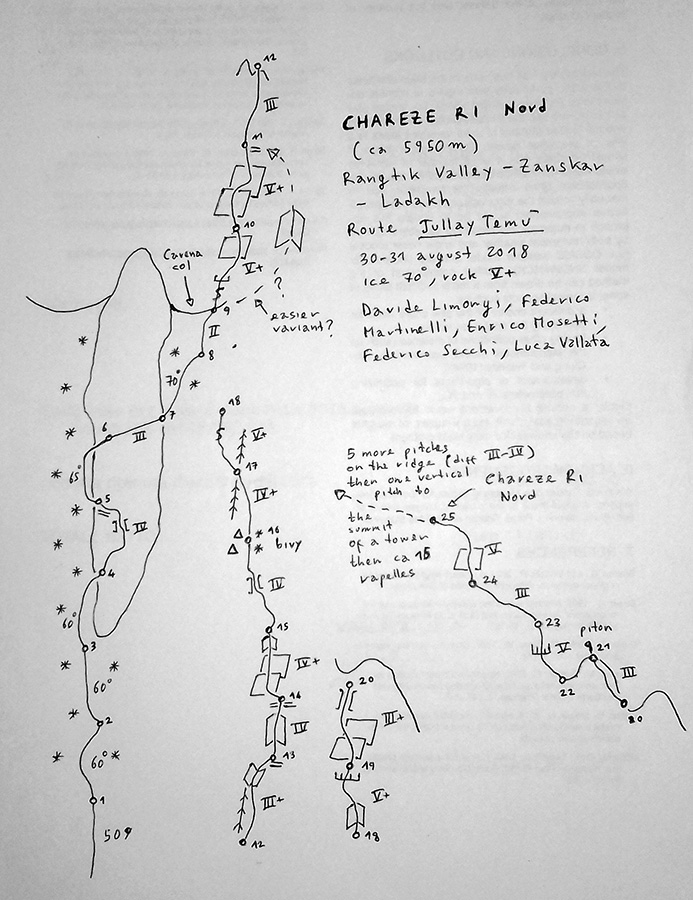 CHAREZE RI Nord
(ca 5950m)
Rangtik Valley - Zanskar
- Ladakh
Route Jullay Temu
30-31 august 2018
ice 70°, rock V+
Davide Limongi, Federico
Martinelli, Enrico Mosetti,
Federico Secchi, Luca Vallata
12
III
11
V+
10
V+
Cavena
col
?
9
easier
variant?
II
8
70°
7
6
III
65°
5
IV
4
60°
3
60°
2
60°
1
50°
18
V+
17
IV+
16
bivy
IV
15
IV+
14
IV
13
III+
12
20
III+
19
V+
18
5 more pitches
on the ridge (diff III-IV)
then one vertical
pitch to
the
summit
of a tower
then ca 15
rapelles
Chareze RI
Nord
25
V
24
III
23
V
piton
21
22
III
20